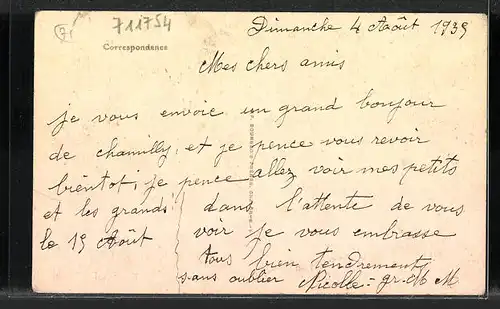 71
711754
Correspondence
Dimanche 4 Août 1935
Mes chers amis
je vous envoie un grand bonjour
de chamilly, et je pence vous revoir
bientot, je pence allez voir mes petits
et les grands dans l'attente de vous
le 15 Août voir je vous embrasse
tous bien tendrement
sans oublier Nicolle = gr. M M